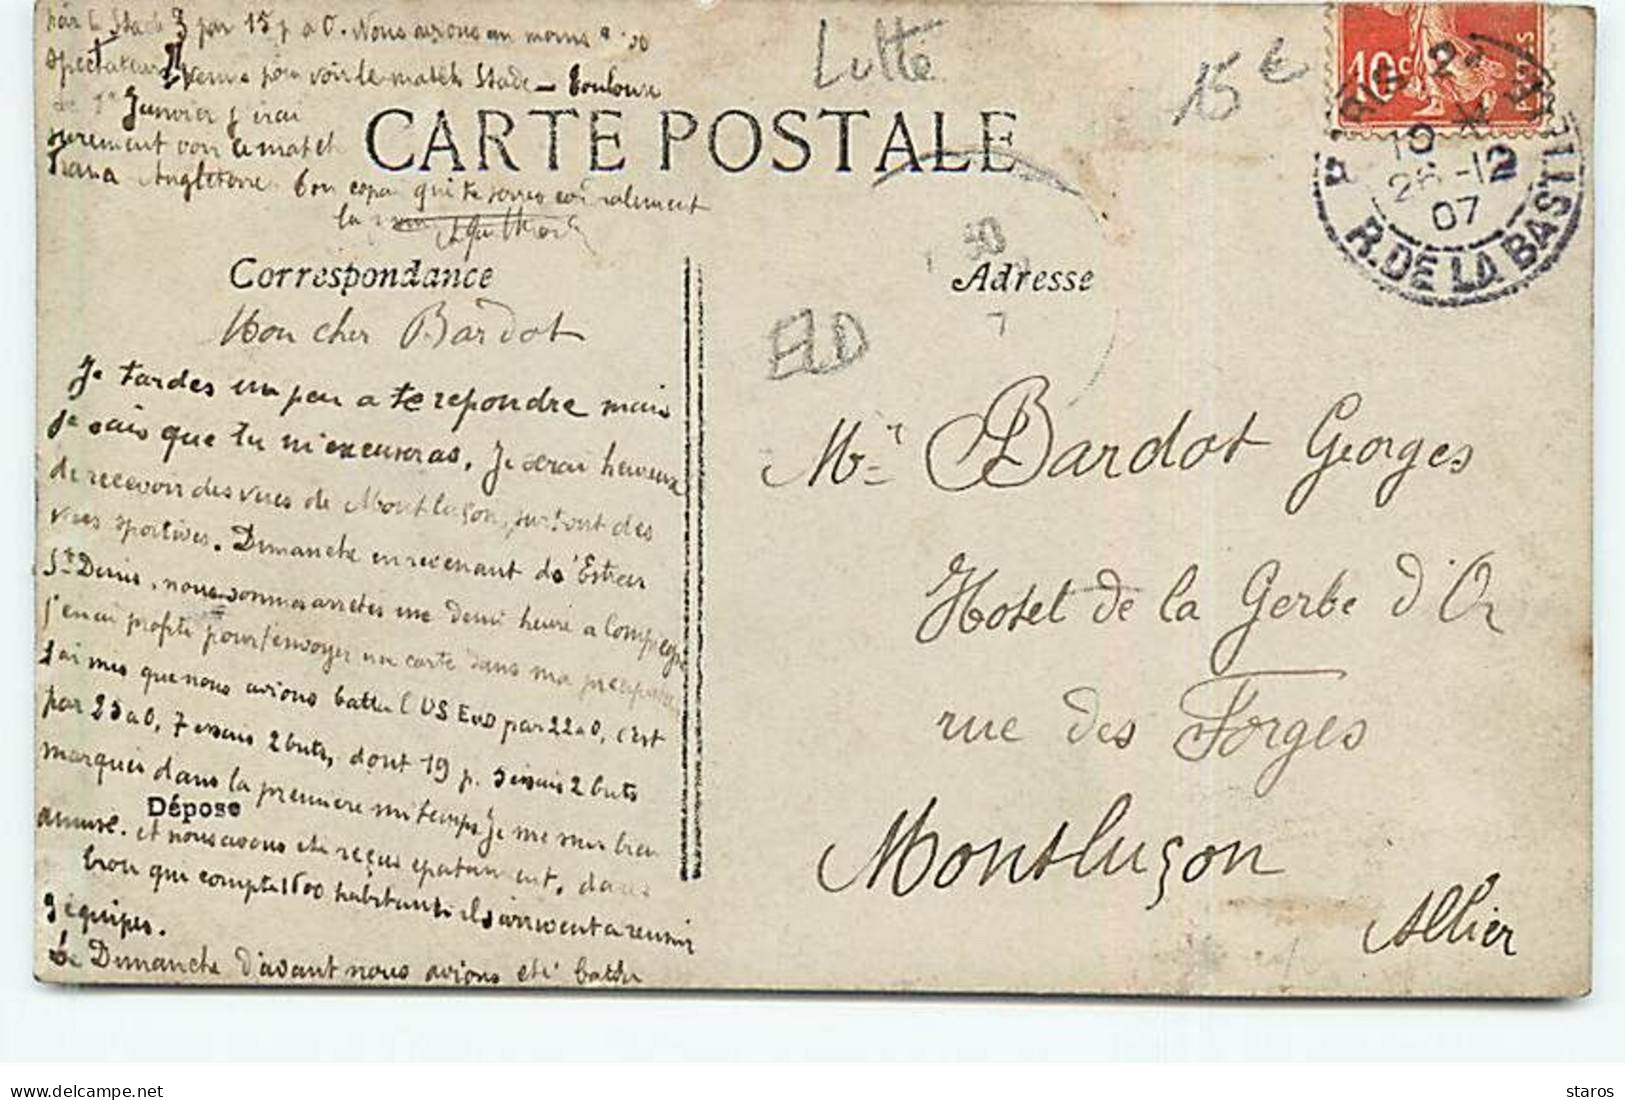 par le Stade 3 par 15 p a 0. Nous avions au moins
spectateurs venus pour voir le match Stade - Toulouse
de 1er Janvier j'irai
surement voir le match
Angleterre. Ton copain qui te serre cordialement
la
CARTE POSTALE
Lutte
15 €
10c
PARIS
R. DE LA BASTILLE
10
26-12
07
Correspondance
Adresse
ELD
Mon cher Bardot
Je tardes un peu a te repondre mais
je sais que tu m'excuseras. Je serai heureux
de recevoir des vues de Montluçon, surtout des
vues sportives. Dimanche en revenant de l'Estrees
St Denis, nous sommes arretes une demi heure a Compiegne
j'en ai profité pour t'envoyer un carte dans ma precipitation
J'ai mis que nous avions battu l'US EstD par 22 a 0, c'est
par 25 a 0, 7 essais 2 buts, dont 19 p. 5 essais 2 buts
marqués dans la premiere mi temps Je me suis bien
amusé. et nous avons été reçus epatamment, dans
trou qui compte 1600 habitants ils arrivent a reunir
3 équipes.
Le Dimanche d'avant nous avions été battu
Déposé
Mr Bardot Georges
Hotel de la Gerbe d'Or
rue des Forges
Montluçon
Allier
Copyright © Delcampe International SRL
staros